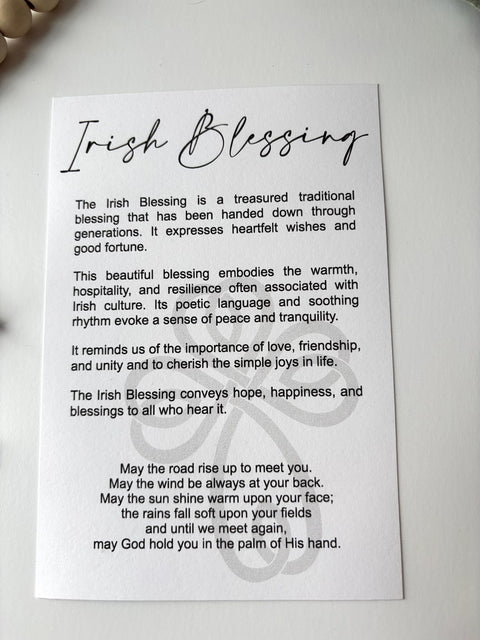 Irish Blessing
The Irish Blessing is a treasured traditional
blessing that has been handed down through
generations. It expresses heartfelt wishes and
good fortune.
This beautiful blessing embodies the warmth,
hospitality, and resilience often associated with
Irish culture. Its poetic language and soothing
rhythm evoke a sense of peace and tranquility.
It reminds us of the importance of love, friendship,
and unity and to cherish the simple joys in life.
The Irish Blessing conveys hope, happiness, and
blessings to all who hear it.
May the road rise up to meet you.
May the wind be always at your back.
May the sun shine warm upon your face;
the rains fall soft upon your fields
and until we meet again,
may God hold you in the palm of His hand.